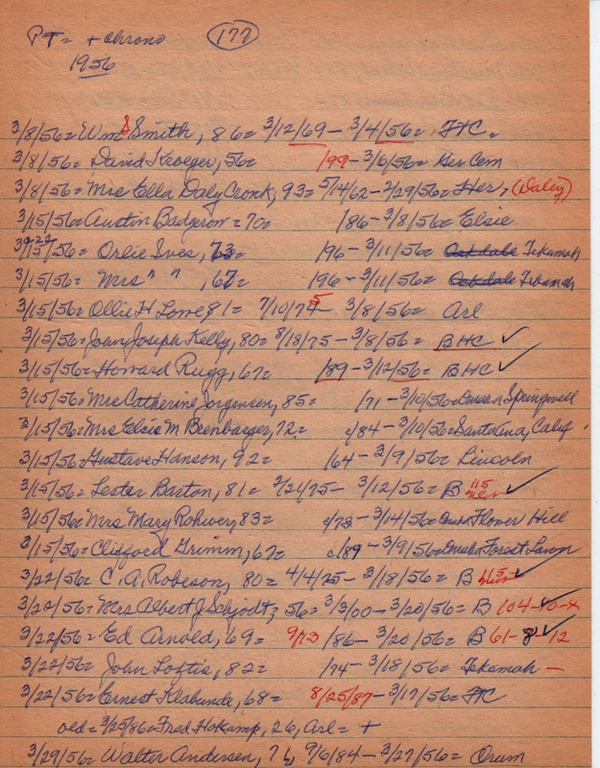 PT = + chrono (177)
1956
3/8/56= Wm S Smith, 86= 3/12/69 - 3/4/56= FC.
3/8/56= David Kroeger, 56= /99 - 3/6/56= Ger Cem
3/8/56= Mrs Ella Daly Cronk, 93= 5/14/62 - 2/29/56= Her, (Daley)
3/15/56= Austin Badgerow = 70= /86 - 3/8/56= Elsie
/56= Orlie Ives, 73= /96 - 3/11/56= Oakdale Tekamah
3/15/56= Mrs " ", 67= /96 - 3/11/56= Oakdale Tekamah
3/15/56= Ollie H Lowe, 81= 7/10/75 3/8/56= Arl
3/15/56= John Joseph Kelly, 80= 8/18/75 - 3/8/56= BHC ✓
3/15/56= Howard Rugg, 67= /89 - 3/12/56= BHC ✓
3/15/56= Mrs Catherine Jorgensen, 85= /71 - 3/10/56= Omaha Springwell
3/15/56= Mrs Elsie M Beenbarger, 72= c/84 - 3/10/56= Santa Ana, Calif
3/15/56= Gustave Hanson, 92= /64 - 2/9/56= Lincoln
3/15/56= Lester Barton, 81= 2/21/75 - 3/12/56= B 115 ✓
3/15/56= Mrs Mary Rohwer, 83= c/73 - 3/14/56= Omaha Flower Hill
3/15/56= Clifford Grimm, 67= c/89 - 3/9/56= Omaha Forest Lawn
3/22/56= C. A. Robeson, 80= 4/4/75 - 3/18/56= B 115 ✓
3/20/56= Mrs Albert J Schjodt, 56= 3/3/00 - 3/20/56= B 104-10-4
3/22/56= Ed Arnold, 69= 9/13 /86 - 3/20/56= B 61-8-12 ✓
3/22/56= John Loftis, 82= /74 - 3/18/56= Tekamah -
3/22/56= Ernest Klabunde, 68= 8/25/87 - 3/17/56= FC
old = 3/25/86= Fred Hokamp, 26, Arl = +
3/29/56= Walter Andersen, 71, 9/6/84 - 3/27/56= Orum